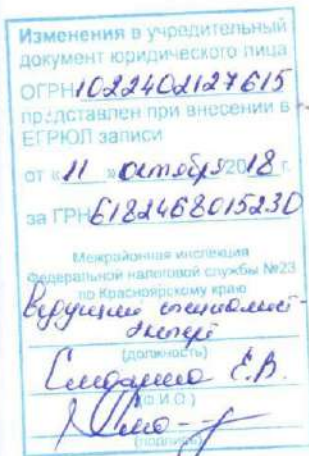 Изменения в учредительный
документ юридического лица
ОГРН 1022402127615
представлен при внесении в
ЕГРЮЛ записи
от «11» октября 2018 г.
за ГРН 6182468015230
Межрайонная инспекция
Федеральной налоговой службы №23
по Красноярскому краю
Ведущий специалист-
эксперт
(должность)
Е.В.
(Ф.И.О.)
(подпись)